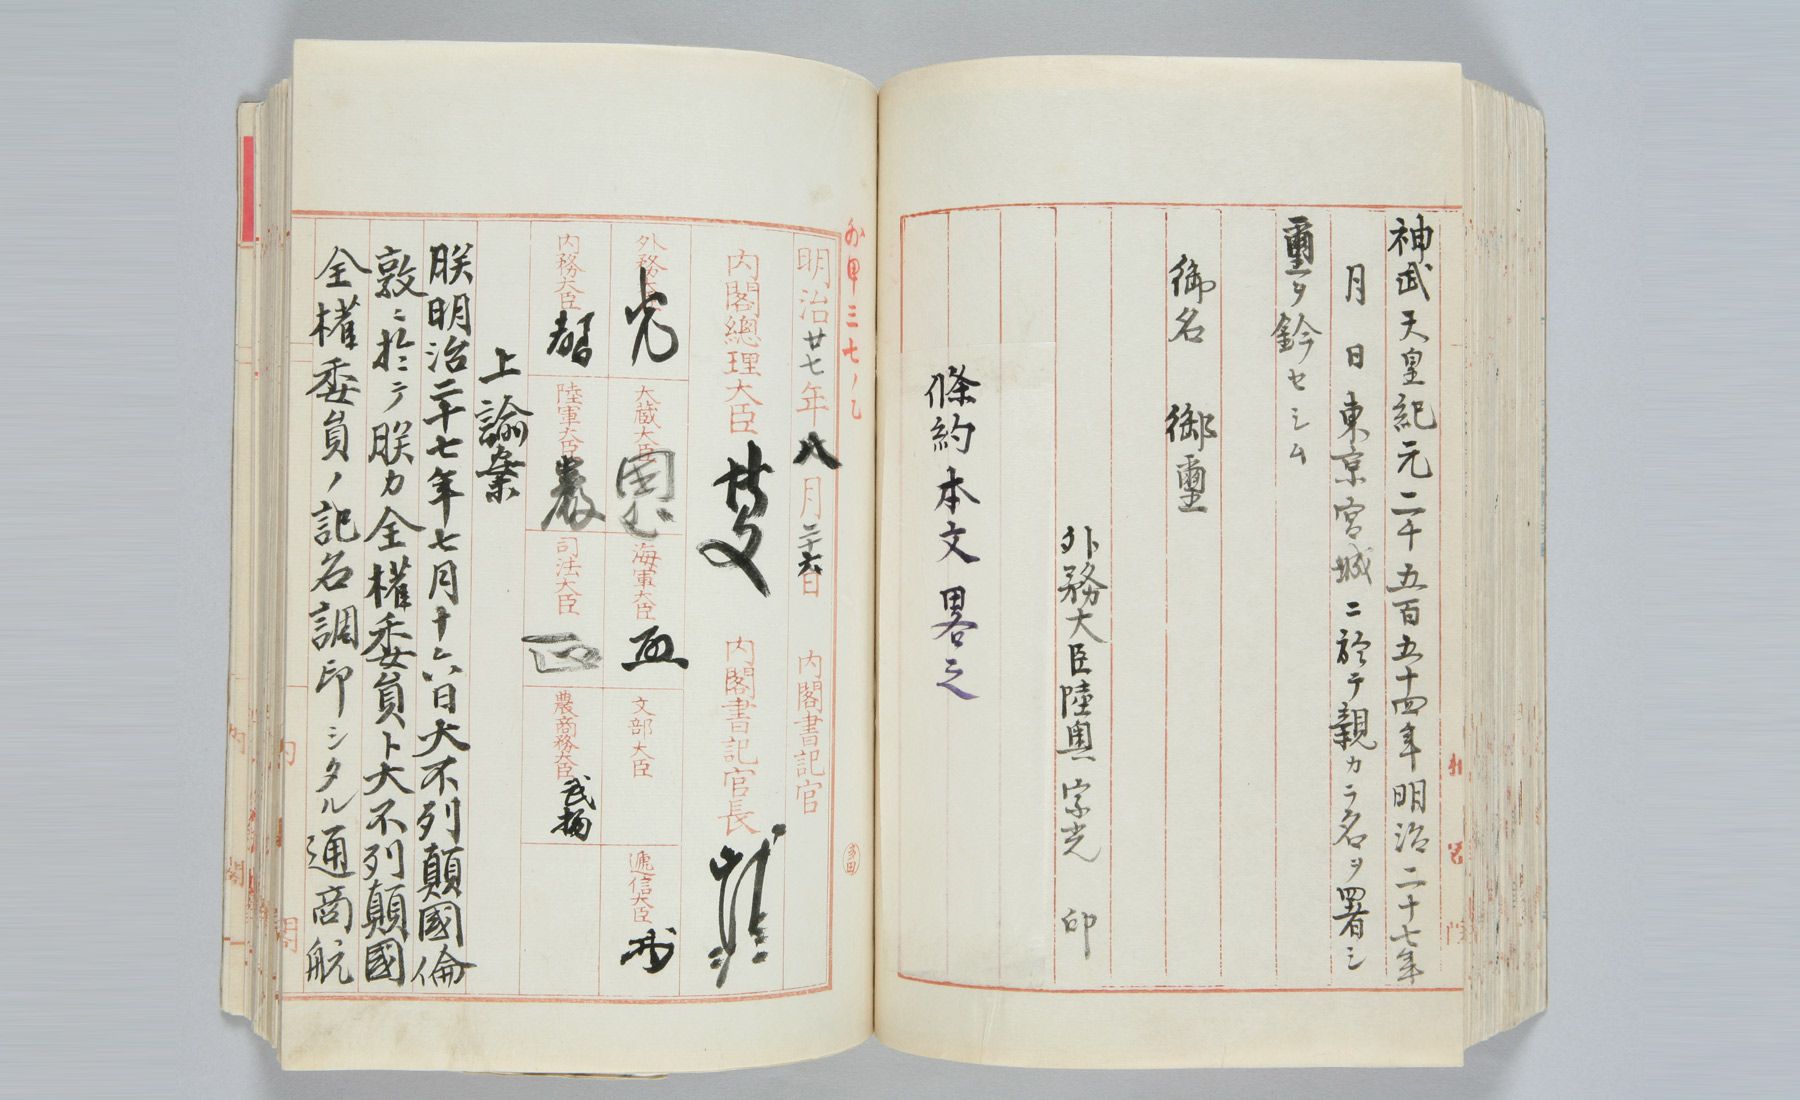 神武天皇紀元二千五百五十四年明治二十七年
月 日東京宮城ニ於テ親カラ名ヲ署シ
璽ヲ鈐セシム
御名 御璽
外務大臣陸奥宗光 印
條約本文畧之
外甲三七ノ乙
明治廿七年八月二十六日 内閣書記官
内閣總理大臣 内閣書記官長
外務大臣 光 大蔵大臣 海軍大臣 文部大臣 逓信大臣
内務大臣 馨 陸軍大臣 巖 司法大臣 正 農商務大臣 武揚
上諭案
朕明治二十七年七月十六日大不列顛國倫
敦ニ於テ朕カ全權委員ト大不列顛國
全權委員ノ記名調印シタル通商航
内閣